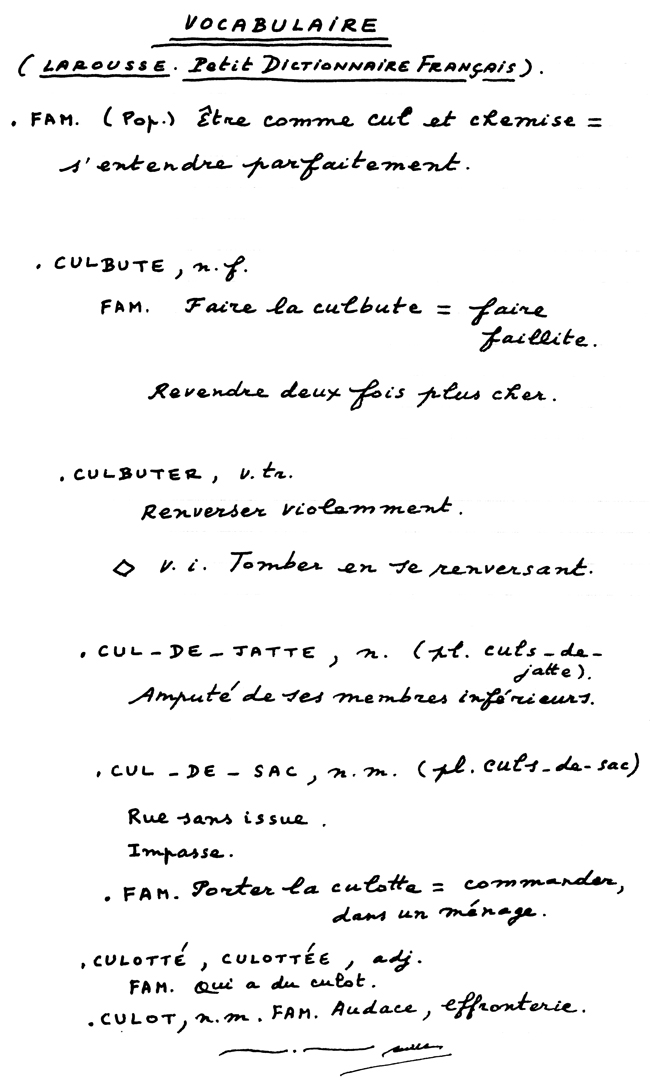 VOCABULAIRE
(LAROUSSE. Petit DICTIONNAIRE FRANÇAIS).
. FAM. (Pop.) Être comme cul et chemise =
s'entendre parfaitement.
. CULBUTE, n.f.
FAM. Faire la culbute = faire
faillite.
Revendre deux fois plus cher.
. CULBUTER, v.tr.
Renverser violemment.
◇ v.i. Tomber en se renversant.
. CUL-DE-JATTE, n. (pl. culs-de-
jatte).
Amputé de ses membres inférieurs.
. CUL-DE-SAC, n.m. (pl. culs-de-sac)
Rue sans issue.
Impasse.
. FAM. Porter la culotte = commander,
dans un ménage.
. CULOTTÉ, CULOTTÉE, adj.
FAM. Qui a du culot.
. CULOT, n.m. FAM. Audace, effronterie.